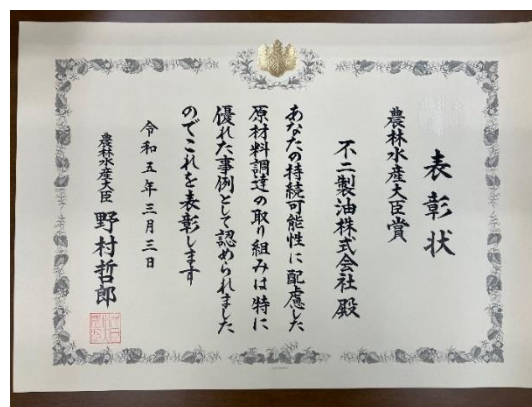 表彰状
農林水産大臣賞
不二製油株式会社 殿
あなたの持続可能性に配慮した
原材料調達の取り組みは特に
優れた事例として認められました
のでこれを表彰します
令和五年三月三日
農林水産大臣 野村哲郎